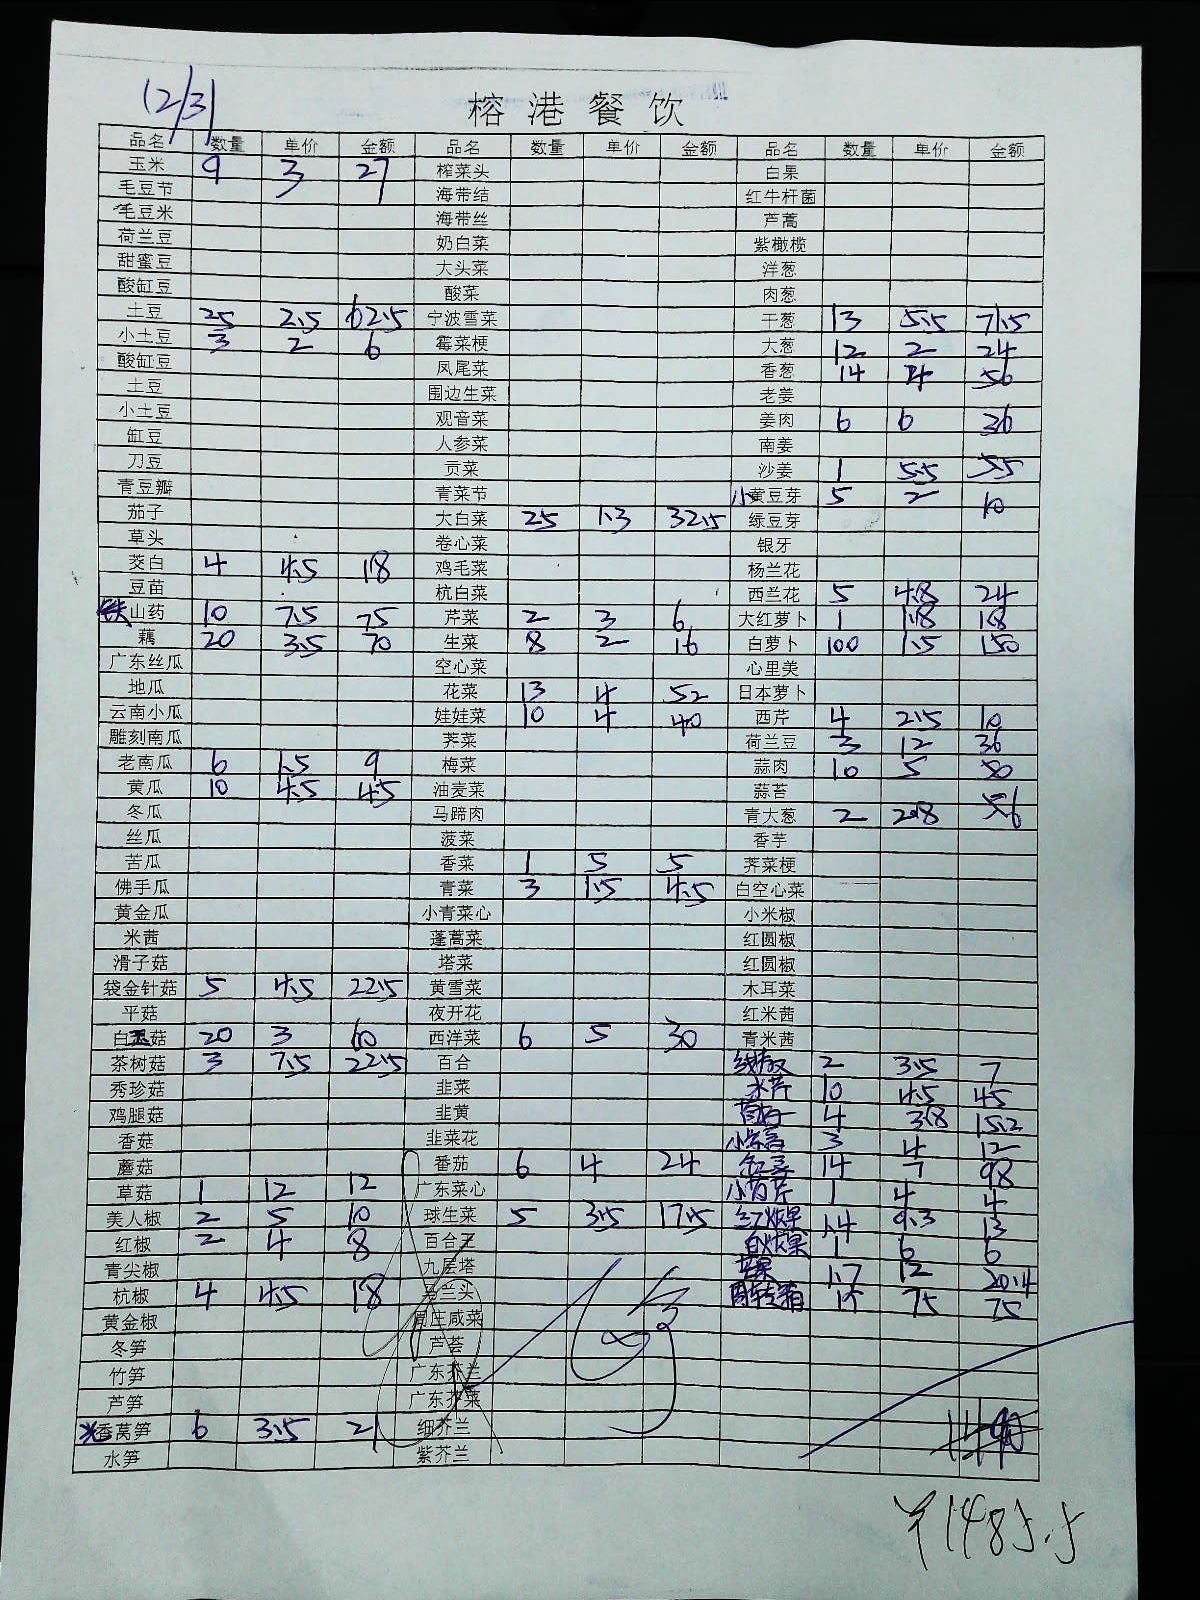 12/31
榕港餐饮
品名 数量 单价 金额 品名 数量 单价 金额 品名 数量 单价 金额
玉米 9 3 27 榨菜头 白果
毛豆节 海带结 红牛杆菌
毛豆米 海带丝 芦蒿
荷兰豆 奶白菜 紫橄榄
甜蜜豆 大头菜 洋葱
酸缸豆 酸菜 肉葱
土豆 25 2.5 62.5 宁波雪菜 干葱 13 5.5 71.5
小土豆 3 2 6 霉菜梗 大葱 12 2 24
酸缸豆 凤尾菜 香葱 14 4 56
土豆 围边生菜 老姜
小土豆 观音菜 姜肉 6 6 36
缸豆 人参菜 南姜
刀豆 贡菜 沙姜 1 5.5 5.5
青豆瓣 青菜节 小黄豆芽 5 2 10
茄子 大白菜 25 1.3 32.5 绿豆芽
草头 卷心菜 银牙
茭白 4 4.5 18 鸡毛菜 杨兰花
豆苗 杭白菜 西兰花 5 4.8 24
铁山药 10 7.5 75 芹菜 2 3 6 大红萝卜 1 1.8 1.8
藕 20 3.5 70 生菜 8 2 16 白萝卜 100 1.5 150
广东丝瓜 空心菜 心里美
地瓜 花菜 13 4 52 日本萝卜
云南小瓜 娃娃菜 10 4 40 西芹 4 2.5 10
雕刻南瓜 荠菜 荷兰豆 3 12 36
老南瓜 6 1.5 9 梅菜 蒜肉 10 5 50
黄瓜 10 4.5 45 油麦菜 蒜苔
冬瓜 马蹄肉 青大葱 2 2.8 5.6
丝瓜 菠菜 香芋
苦瓜 香菜 1 5 5 荠菜梗
佛手瓜 青菜 3 1.5 4.5 白空心菜
黄金瓜 小青菜心 小米椒
米茜 蓬蒿菜 红圆椒
滑子菇 塔菜 红圆椒
袋金针菇 5 4.5 22.5 黄雪菜 木耳菜
平菇 夜开花 红米茜
白玉菇 20 3 60 西洋菜 6 5 30 青米茜
茶树菇 3 7.5 22.5 百合 线椒 2 3.5 7
秀珍菇 韭菜 水芹 10 4.5 45
鸡腿菇 韭黄 4 3.8 15.2
香菇 韭菜花 3 4 12
蘑菇 番茄 6 4 24 14 7 98
草菇 1 12 12 广东菜心 小香芹 1 4 4
美人椒 2 5 10 球生菜 5 3.5 17.5 红火龙果 1.4 9.3 13
红椒 2 4 8 百合王 白火龙果 1 6 6
青尖椒 九层塔 1.7 12 20.4
杭椒 4 4.5 18 马兰头 周转箱 75 75
黄金椒 周庄咸菜
冬笋 芦荟
竹笋 广东芥兰
芦笋 广东芥菜
香莴笋 6 3.5 21 细芥兰
水笋 紫芥兰
¥1485.5